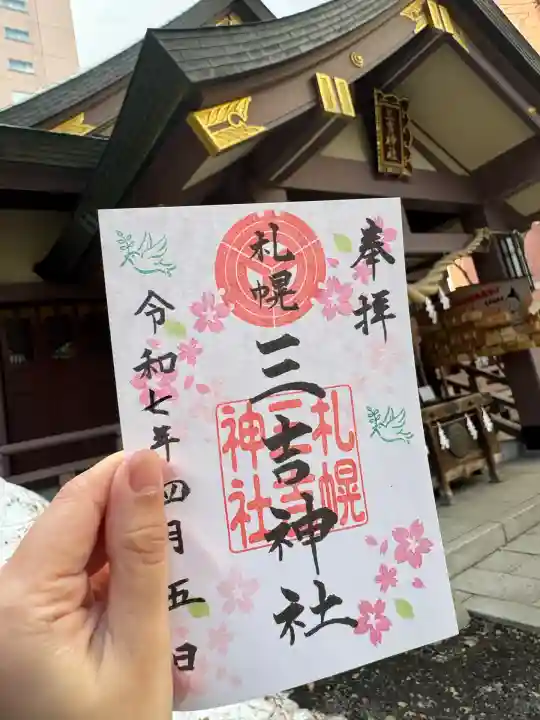 奉拝
札幌
三吉神社
札幌
三吉
神社
令和七年四月五日
三吉神社